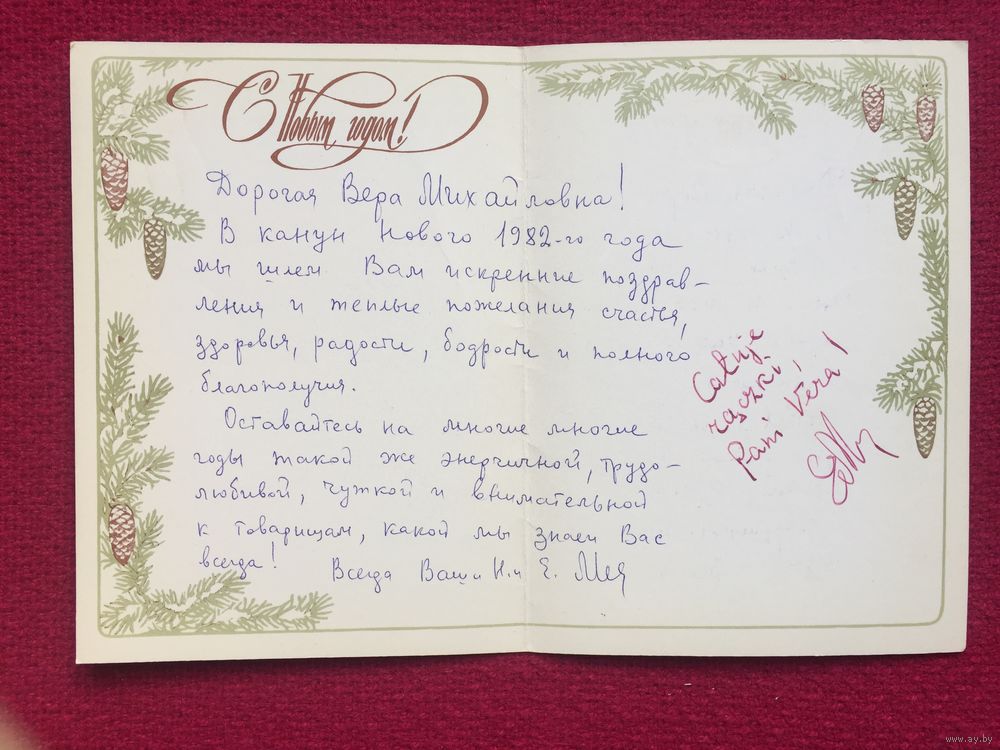 С Новым годом!
Дорогая Вера Михайловна!
В канун Нового 1982-го года
мы шлем Вам искренние поздрав-
ления и теплые пожелания счастья,
здоровья, радости, бодрости и полного
благополучия.
Оставайтесь на многие многие
годы такой же энергичной, трудо-
любивой, чуткой и внимательной
к товарищам, какой мы знаем Вас
всегда!
Всегда Ваши Н. и Е.
Całuje
rączki,
Pani Vera!
www.ay.by